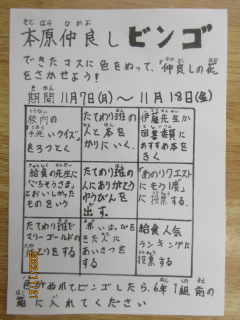 本原仲良しビンゴ
できたマスに色をぬって、「仲良しの花
をさかせよう！
期間 11月7日(月)〜 11月18日(金)
校内の
クイズ」
を3つとく
たてわり班の
人と本を
かりにいく。
伊藤先生か
図書委員に
おすすめ本を
きく
給食の先生に
「ごちそうさま」
とおいしかった
ものをいう
たてわり班の
人にありがとう
ゆうびんを
出す。
「あのリクエスト
にそう贈」
に投票する。
たてわり班で
マリーゴールドの
をする
きた人に
あいさつを
する
給食人気
ランキングに
投票する
色がぬれてビンゴしたら、6年1組前の
箱に入れてください